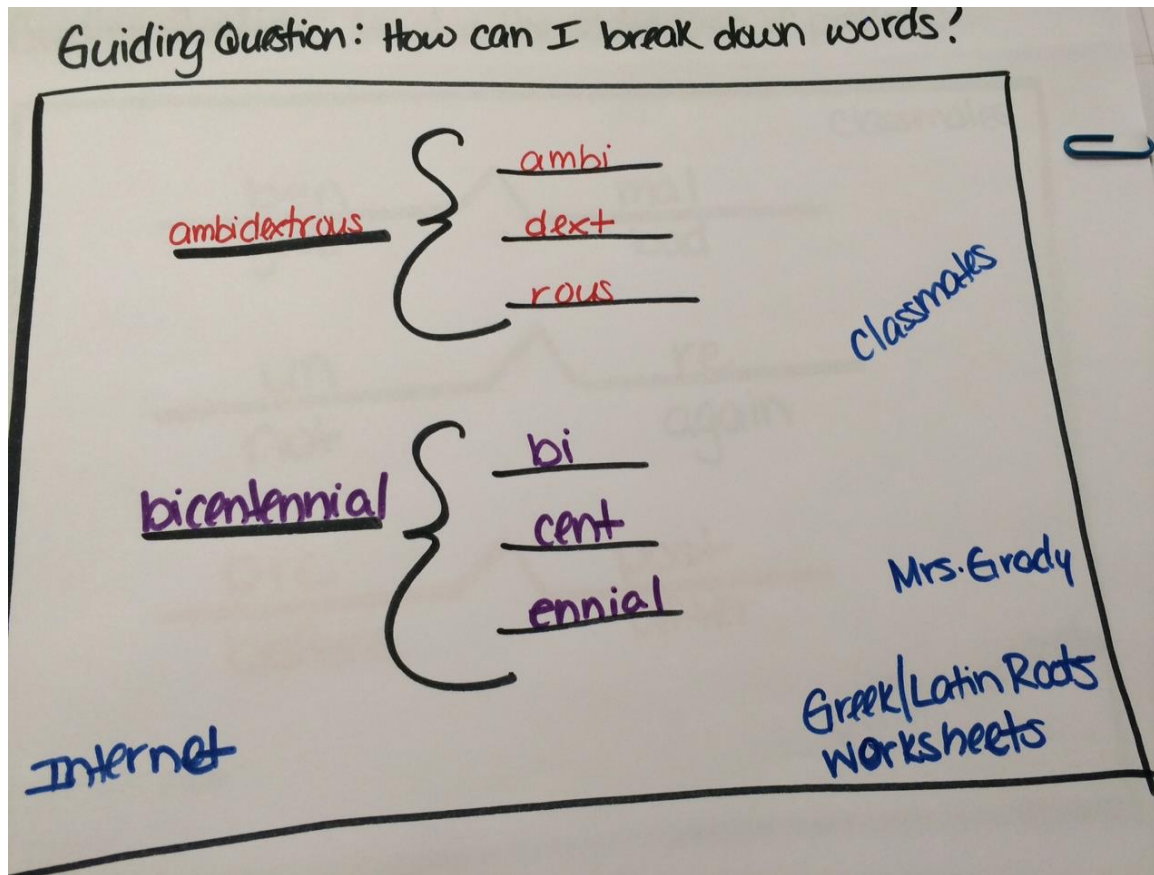 Guiding Question: How can I break down words?
ambidextrous
ambi
dext
rous
classmates
bicentennial
bi
cent
ennial
Mrs. Grady
Greek/Latin Roots
worksheets
Internet